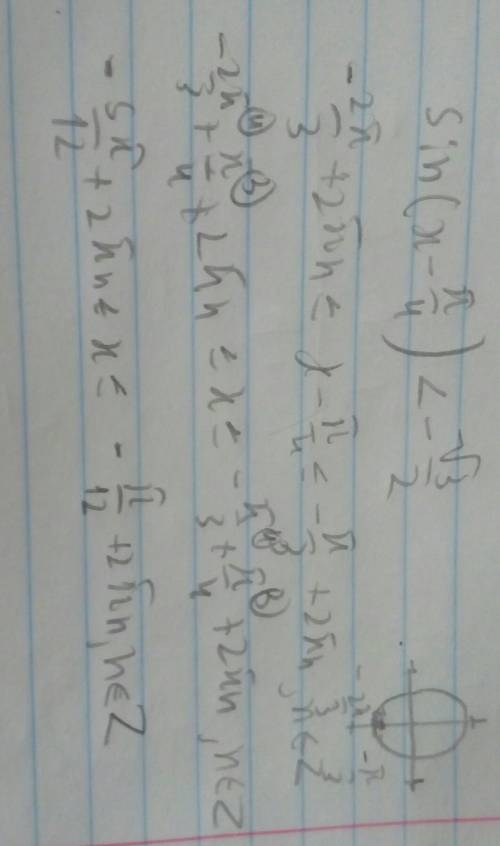 sin(x - π/4) < - √3/2
-2π/3 + 2πn ≤ x - π/4 ≤ - π/3 + 2πn, n ∈ Z
-2π/3 (4 + π/4 (3 + 2πn ≤ x ≤ - π/3 (4 + π/4 (3 + 2πn, n ∈ Z
- 5π/12 + 2πn ≤ x ≤ - π/12 + 2πn, n ∈ Z
-2π/3 -π/3